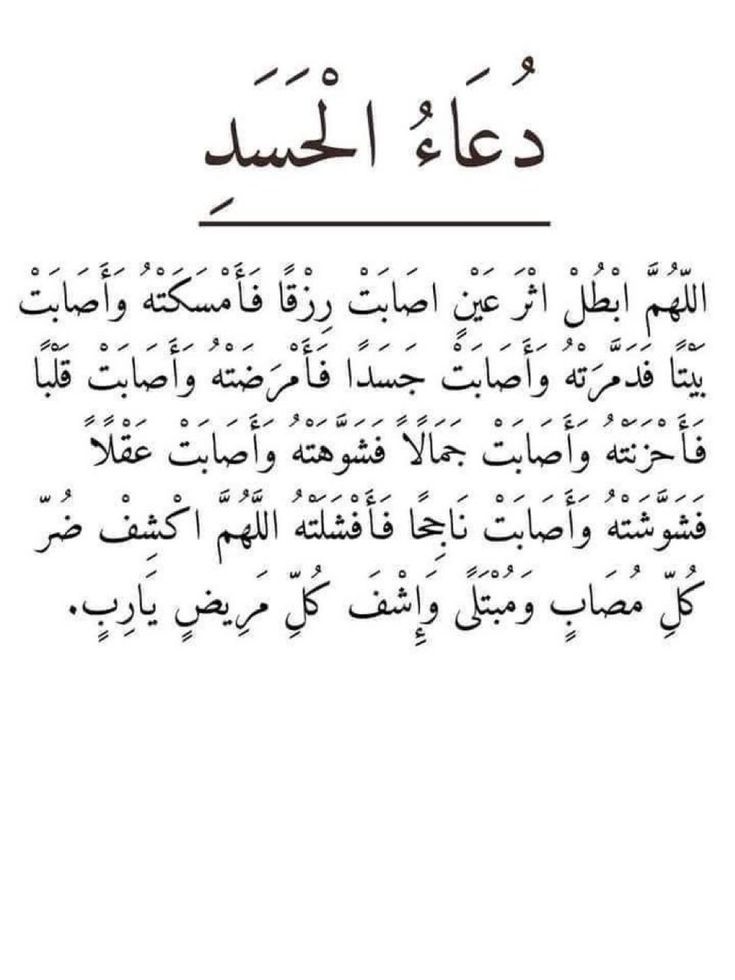 دُعَاءُ الْحَسَدِ
اللّٰهُمَّ ابْطُلْ اثْرَ عَيْنٍ اصَابَتْ رِزْقًا فَأَمْسَكَتْهُ وَأَصَابَتْ
بَيْتًا فَدَمَّرَتْهُ وَأَصَابَتْ جَسَدًا فَأَمْرَضَتْهُ وَأَصَابَتْ قَلْبًا
فَأَحْزَنَتْهُ وَأَصَابَتْ جَمَالًا فَشَوَّهَتْهُ وَأَصَابَتْ عَقْلًا
فَشَوَّشَتْهُ وَأَصَابَتْ نَاجِحًا فَأَفْشَلَتْهُ اللَّهُمَّ اكْشِفْ ضُرّ
كُلِّ مُصَابٍ وَمُبْتَلًى وَإِشْفَ كُلِّ مَرِيضٍ يَارِبٍ.